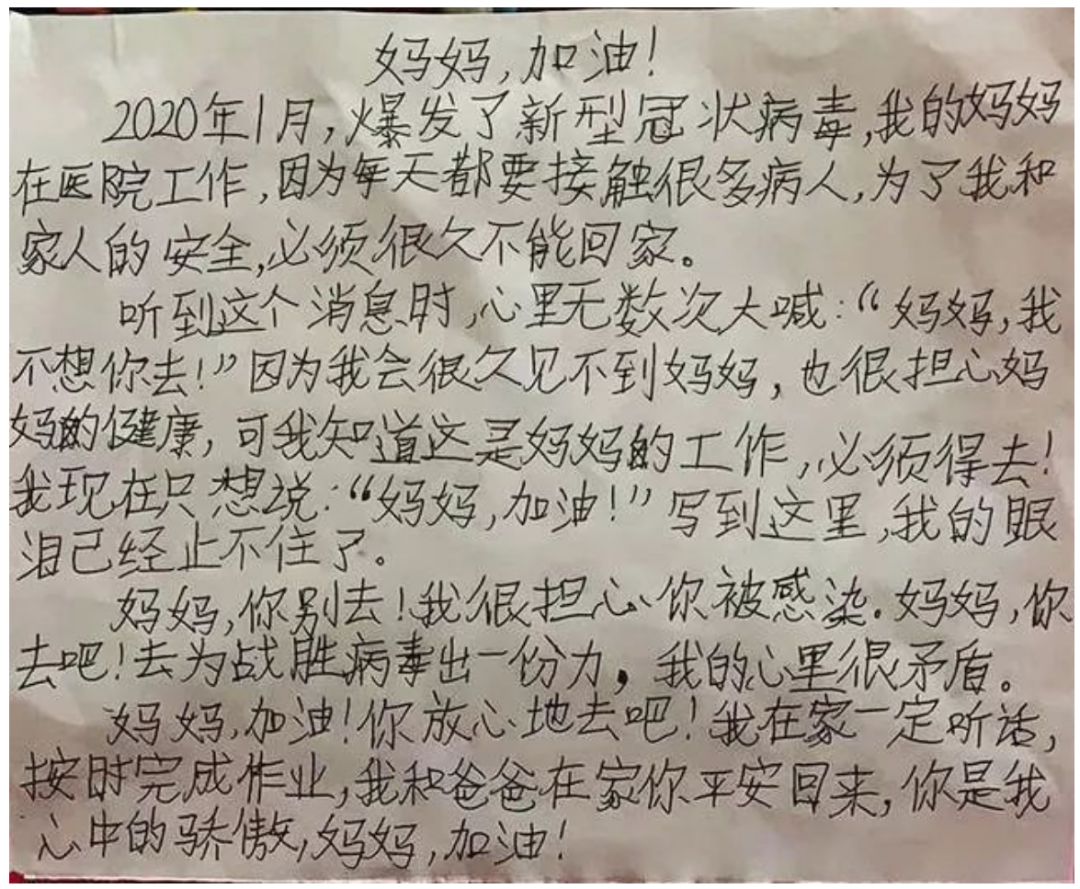 妈妈,加油!
2020年1月,爆发了新型冠状病毒,我的妈妈
在医院工作,因为每天都要接触很多病人,为了我和
家人的安全,必须很久不能回家。
听到这个消息时,心里无数次大喊:“妈妈,我
不想你去!”因为我会很久见不到妈妈,也很担心妈
妈的健康,可我知道这是妈妈的工作,必须得去!
我现在只想说:“妈妈,加油!”写到这里,我的眼
泪已经止不住了。
妈妈,你别去!我很担心你被感染.妈妈,你
去吧!去为战胜病毒出一份力,我的心里很矛盾。
妈妈,加油!你放心地去吧!我在家一定听话,
按时完成作业,我和爸爸在家你平安回来,你是我
心中的骄傲,妈妈,加油!